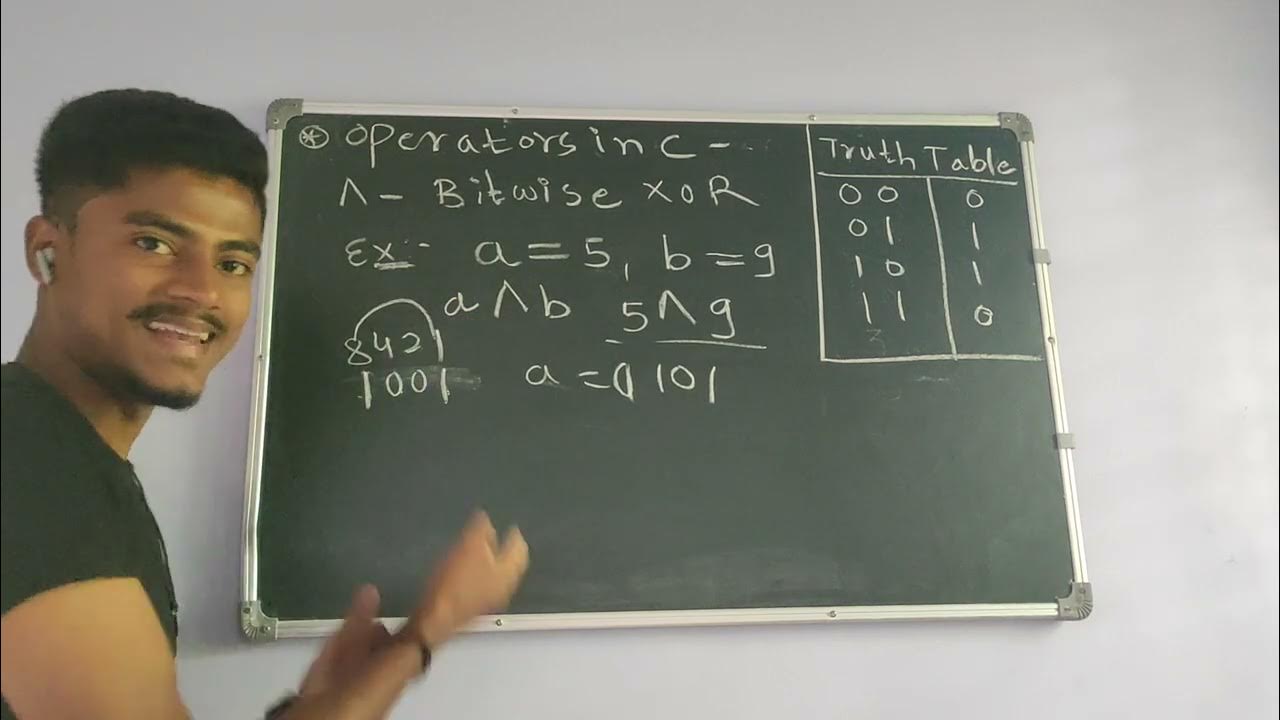 * Operators in C -
^ - Bitwise XOR
Ex:- a = 5, b = 9
a ^ b 5 ^ 9
8421
1001 a = 0101
Truth Table
0 0 0
0 1 1
1 0 1
1 1 0